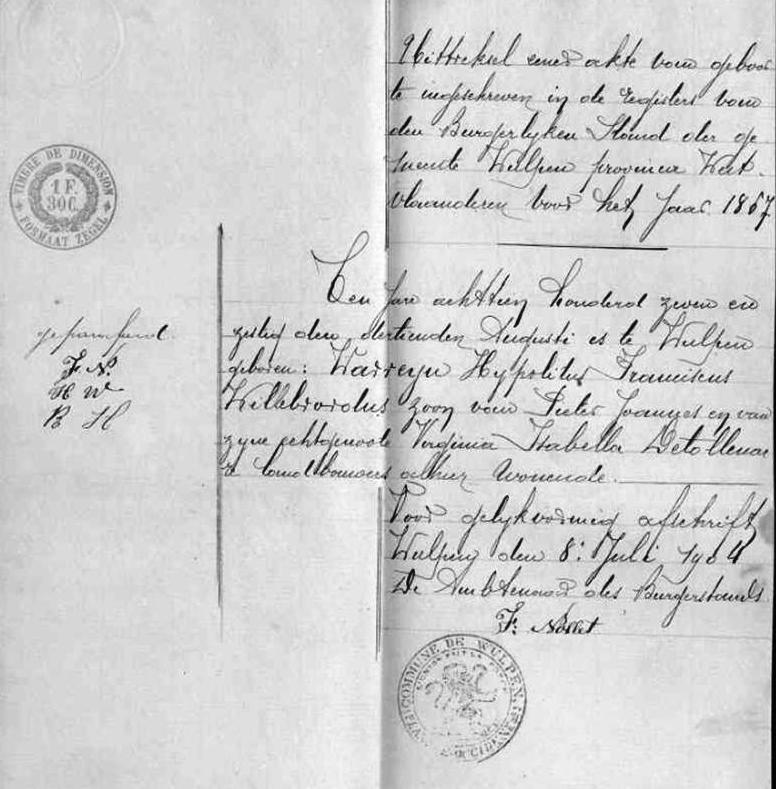 Uittreksel eener akte van geboor
te ingeschreven in de registers van
den Burgerlyken Stand der ge
meente Wulpen provincie West-
vlaanderen voor het jaar 1867
TIMBRE DE DIMENSION
1 F.
30C.
FORMAAT ZEGEL
Ten jare achttien honderd zeven en
zestig den dertienden Augusti es te Wulpen
geboren: Warreyn Hypolitus Franciscus
Willebrordus zoon van Pieter Joannes en van
zyne echtgenoote Virginia Isabella Detollenae
re landbouwers alhier wonende.
geparafeerd
F. N.
H W
B H
Voor gelykvormig afschrift
Wulpen den 8: Juli 1904
De Ambtenaar des Burgerstands
F. Nollet
COMMUNE DE WULPEN